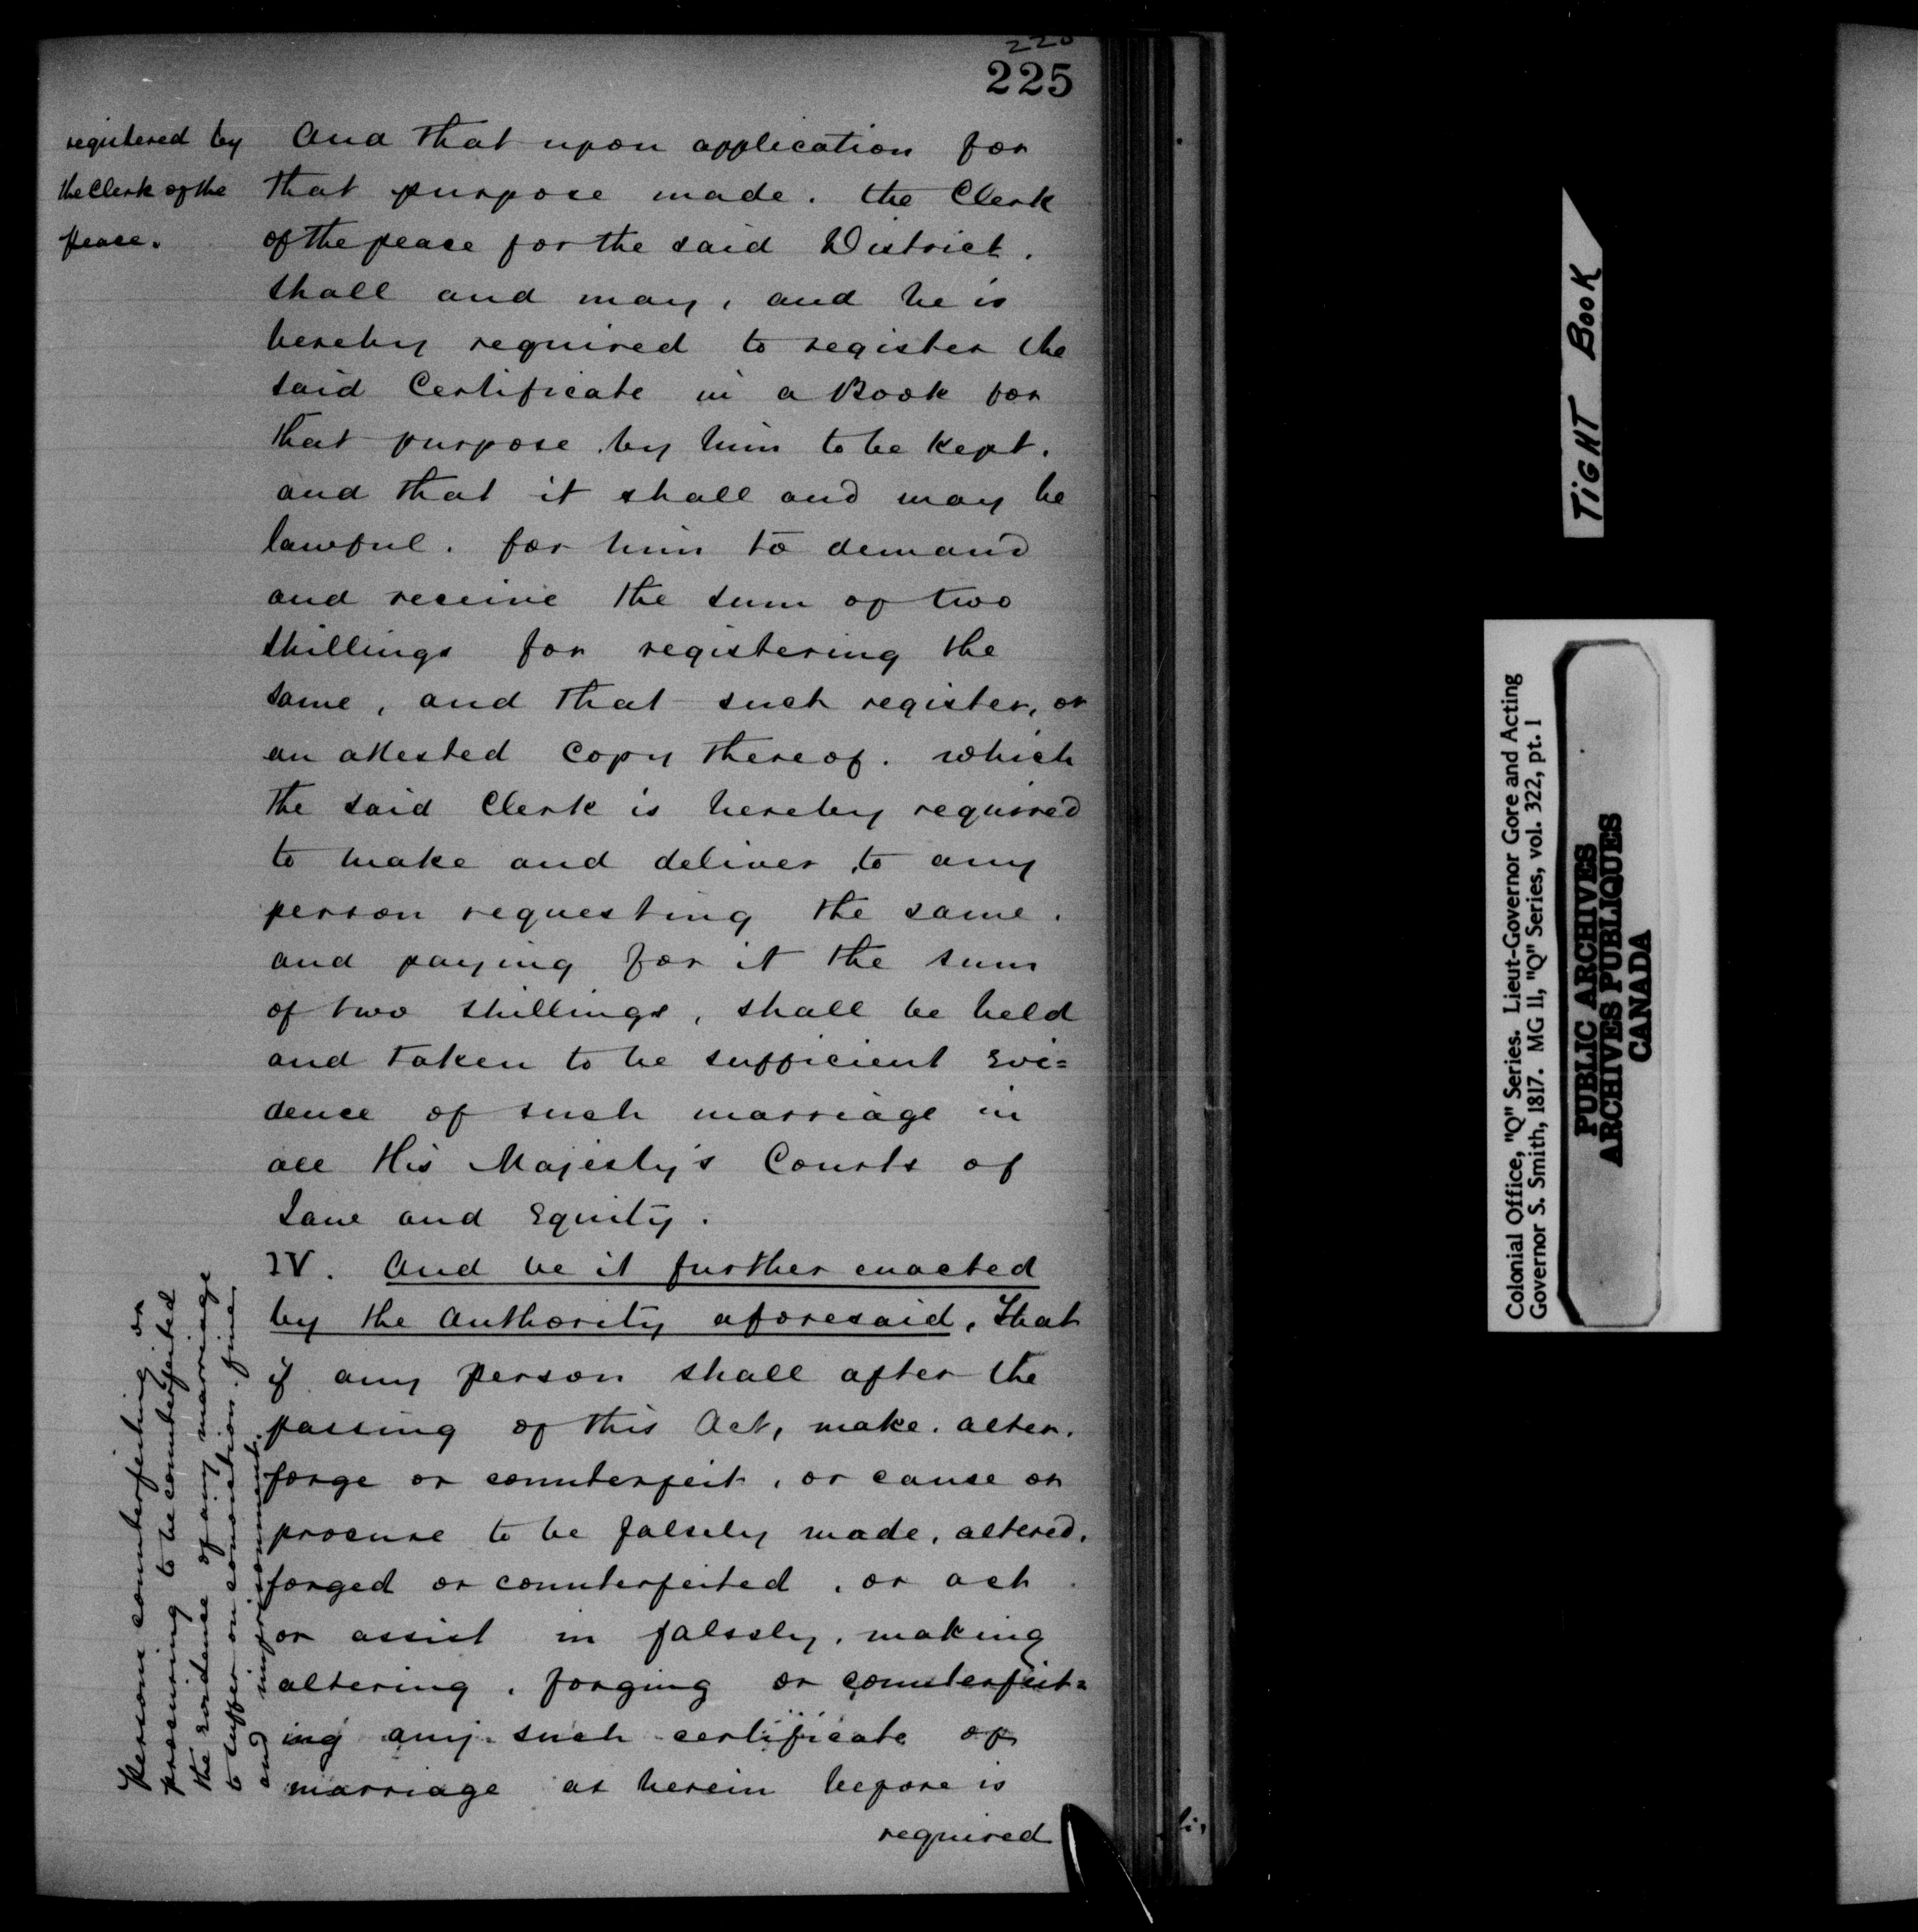 225
registered by
the Clerk of the
peace.
And that upon application for
that purpose made. the Clerk
of the peace for the said District.
shall and may, and he is
hereby required to register the
said Certificate in a Book for
that purpose by him to be kept.
and that it shall and may be
lawful. for him to demand
and receive the sum of two
shillings for registering the
same, and that such register, or
an attested Copy thereof. which
the said Clerk is hereby required
to make and deliver to any
person requesting the same.
and paying for it the sum
of two shillings, shall be held
and taken to be sufficient Evi=
dence of such marriage in
all His Majesty's Courts of
Law and Equity.
IV. And be it further enacted
by the Authority aforesaid, That
if any person shall after the
passing of this Act, make. alter.
forge or counterfeit, or cause or
procure to be falsely made, altered.
forged or counterfeited, or act
or assist in falsely, making
altering, forging or counterfeit=
ing any such certificate of
marriage as herein before is
required
Persons counterfeiting or
procuring to be counterfeited
the evidence of any marriage
to suffer on conviction. fines
and imprisonment.
TIGHT BOOK
Colonial Office, "Q" Series. Lieut-Governor Gore and Acting
Governor S. Smith, 1817. MG 11, "Q" Series, vol. 322, pt. 1
PUBLIC ARCHIVES
ARCHIVES PUBLIQUES
CANADA